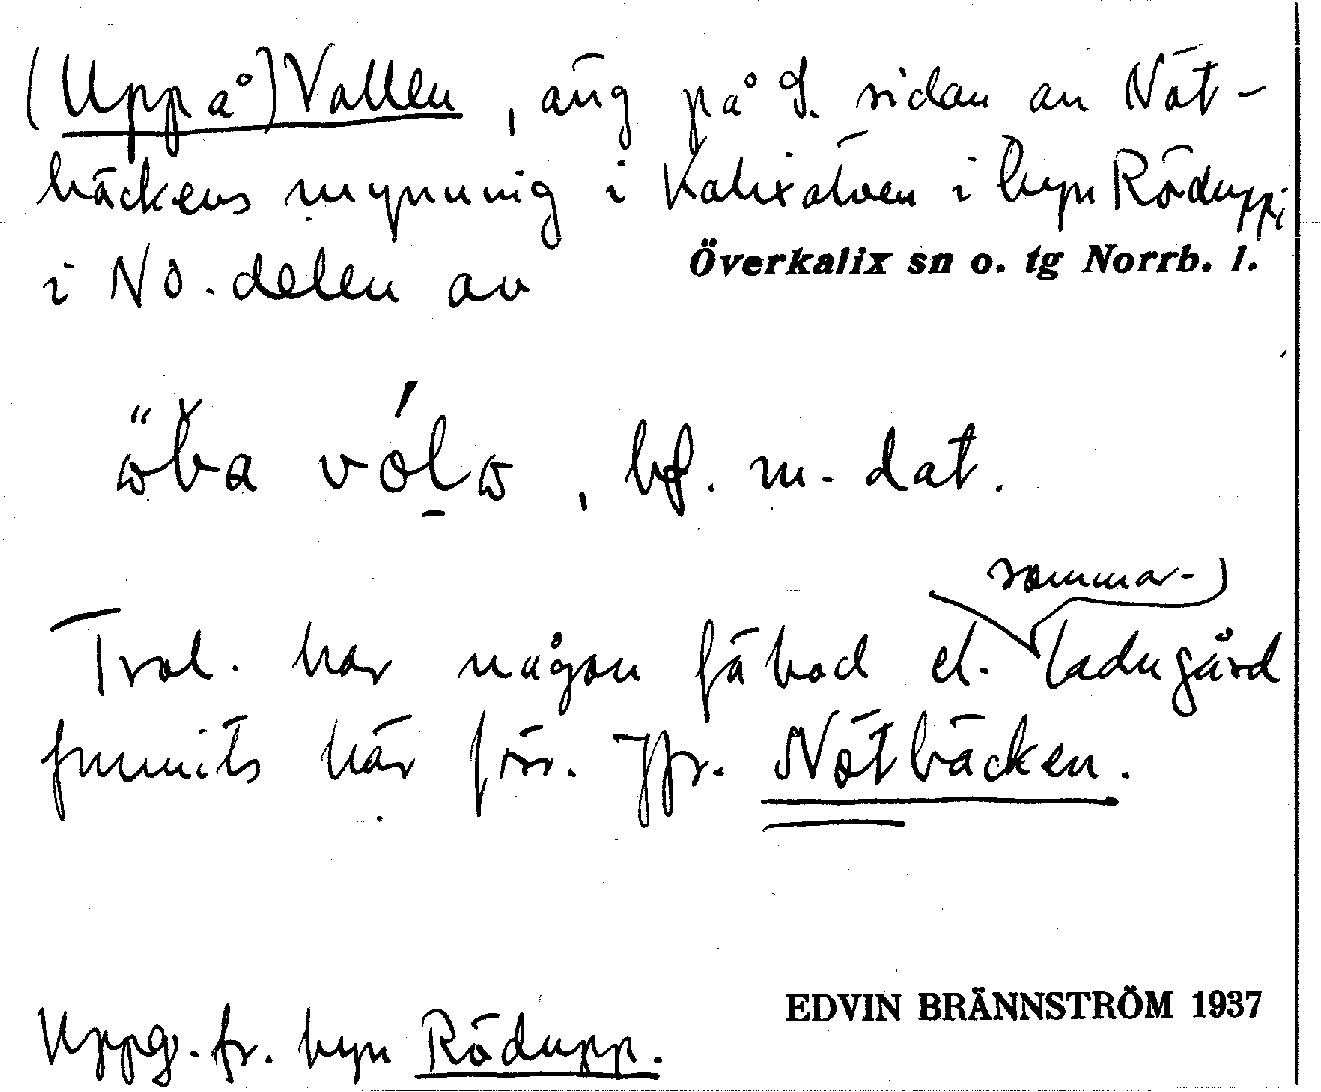 (Uppå) Vallen, äng på S. sidan av Nöt-
bäckens mynning i Kalixälven i byn Röduppi
i NO. delen av Överkalix sn o. tg Norrb. l.
bf. m. dat.
sommar-
Trol. har någon fäbod el. ladugård
funnits här förr. Jfr. Nötbäcken.
EDVIN BRÄNNSTRÖM 1937
Uppg. fr. byn Rödupp.